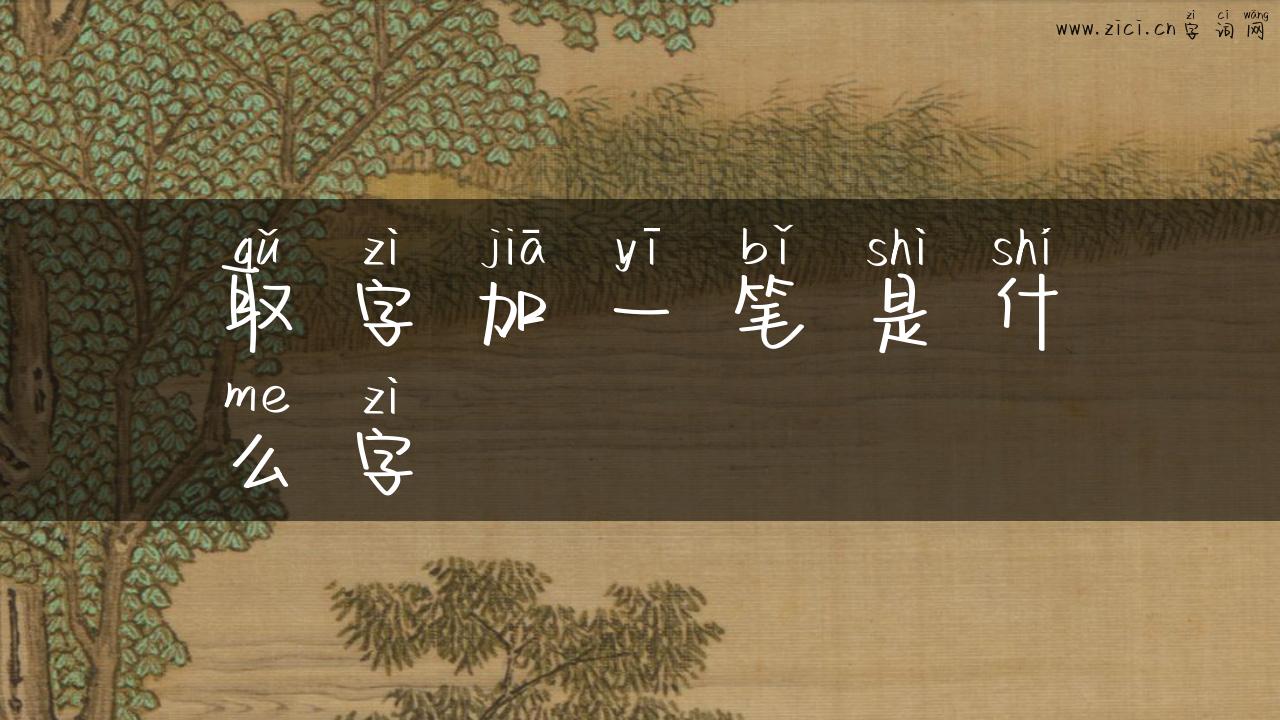 zì cí wǎng
www.zici.cn字词网
qǔ zì jiā yī bǐ shì shí
取字加一笔是什
me zì
么字